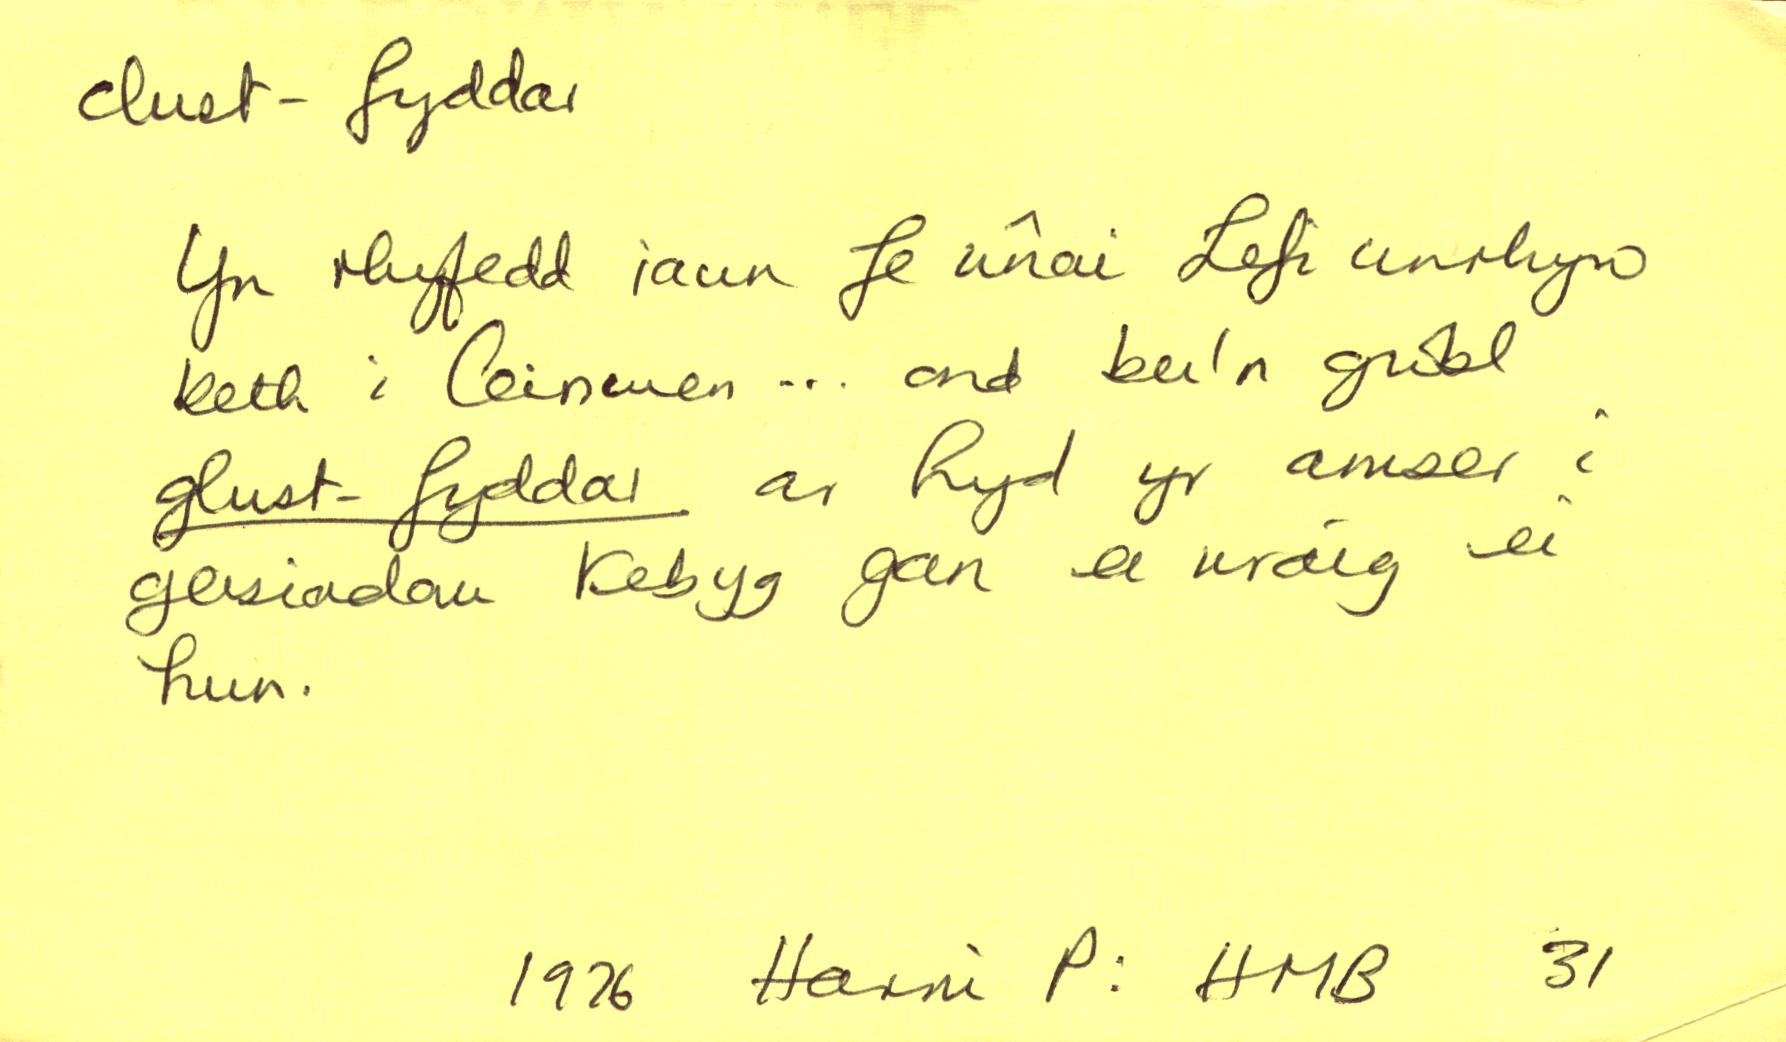 clust-fyddar
Yn rhyfedd iawn fe wnâi Lefi unrhyw
beth i Ceinwen ... ond bu'n gwbl
glust-fyddar ar hyd yr amser i
geisiadau tebyg gan ei wraig ei
hun.
1976 Harri P: HMB 31